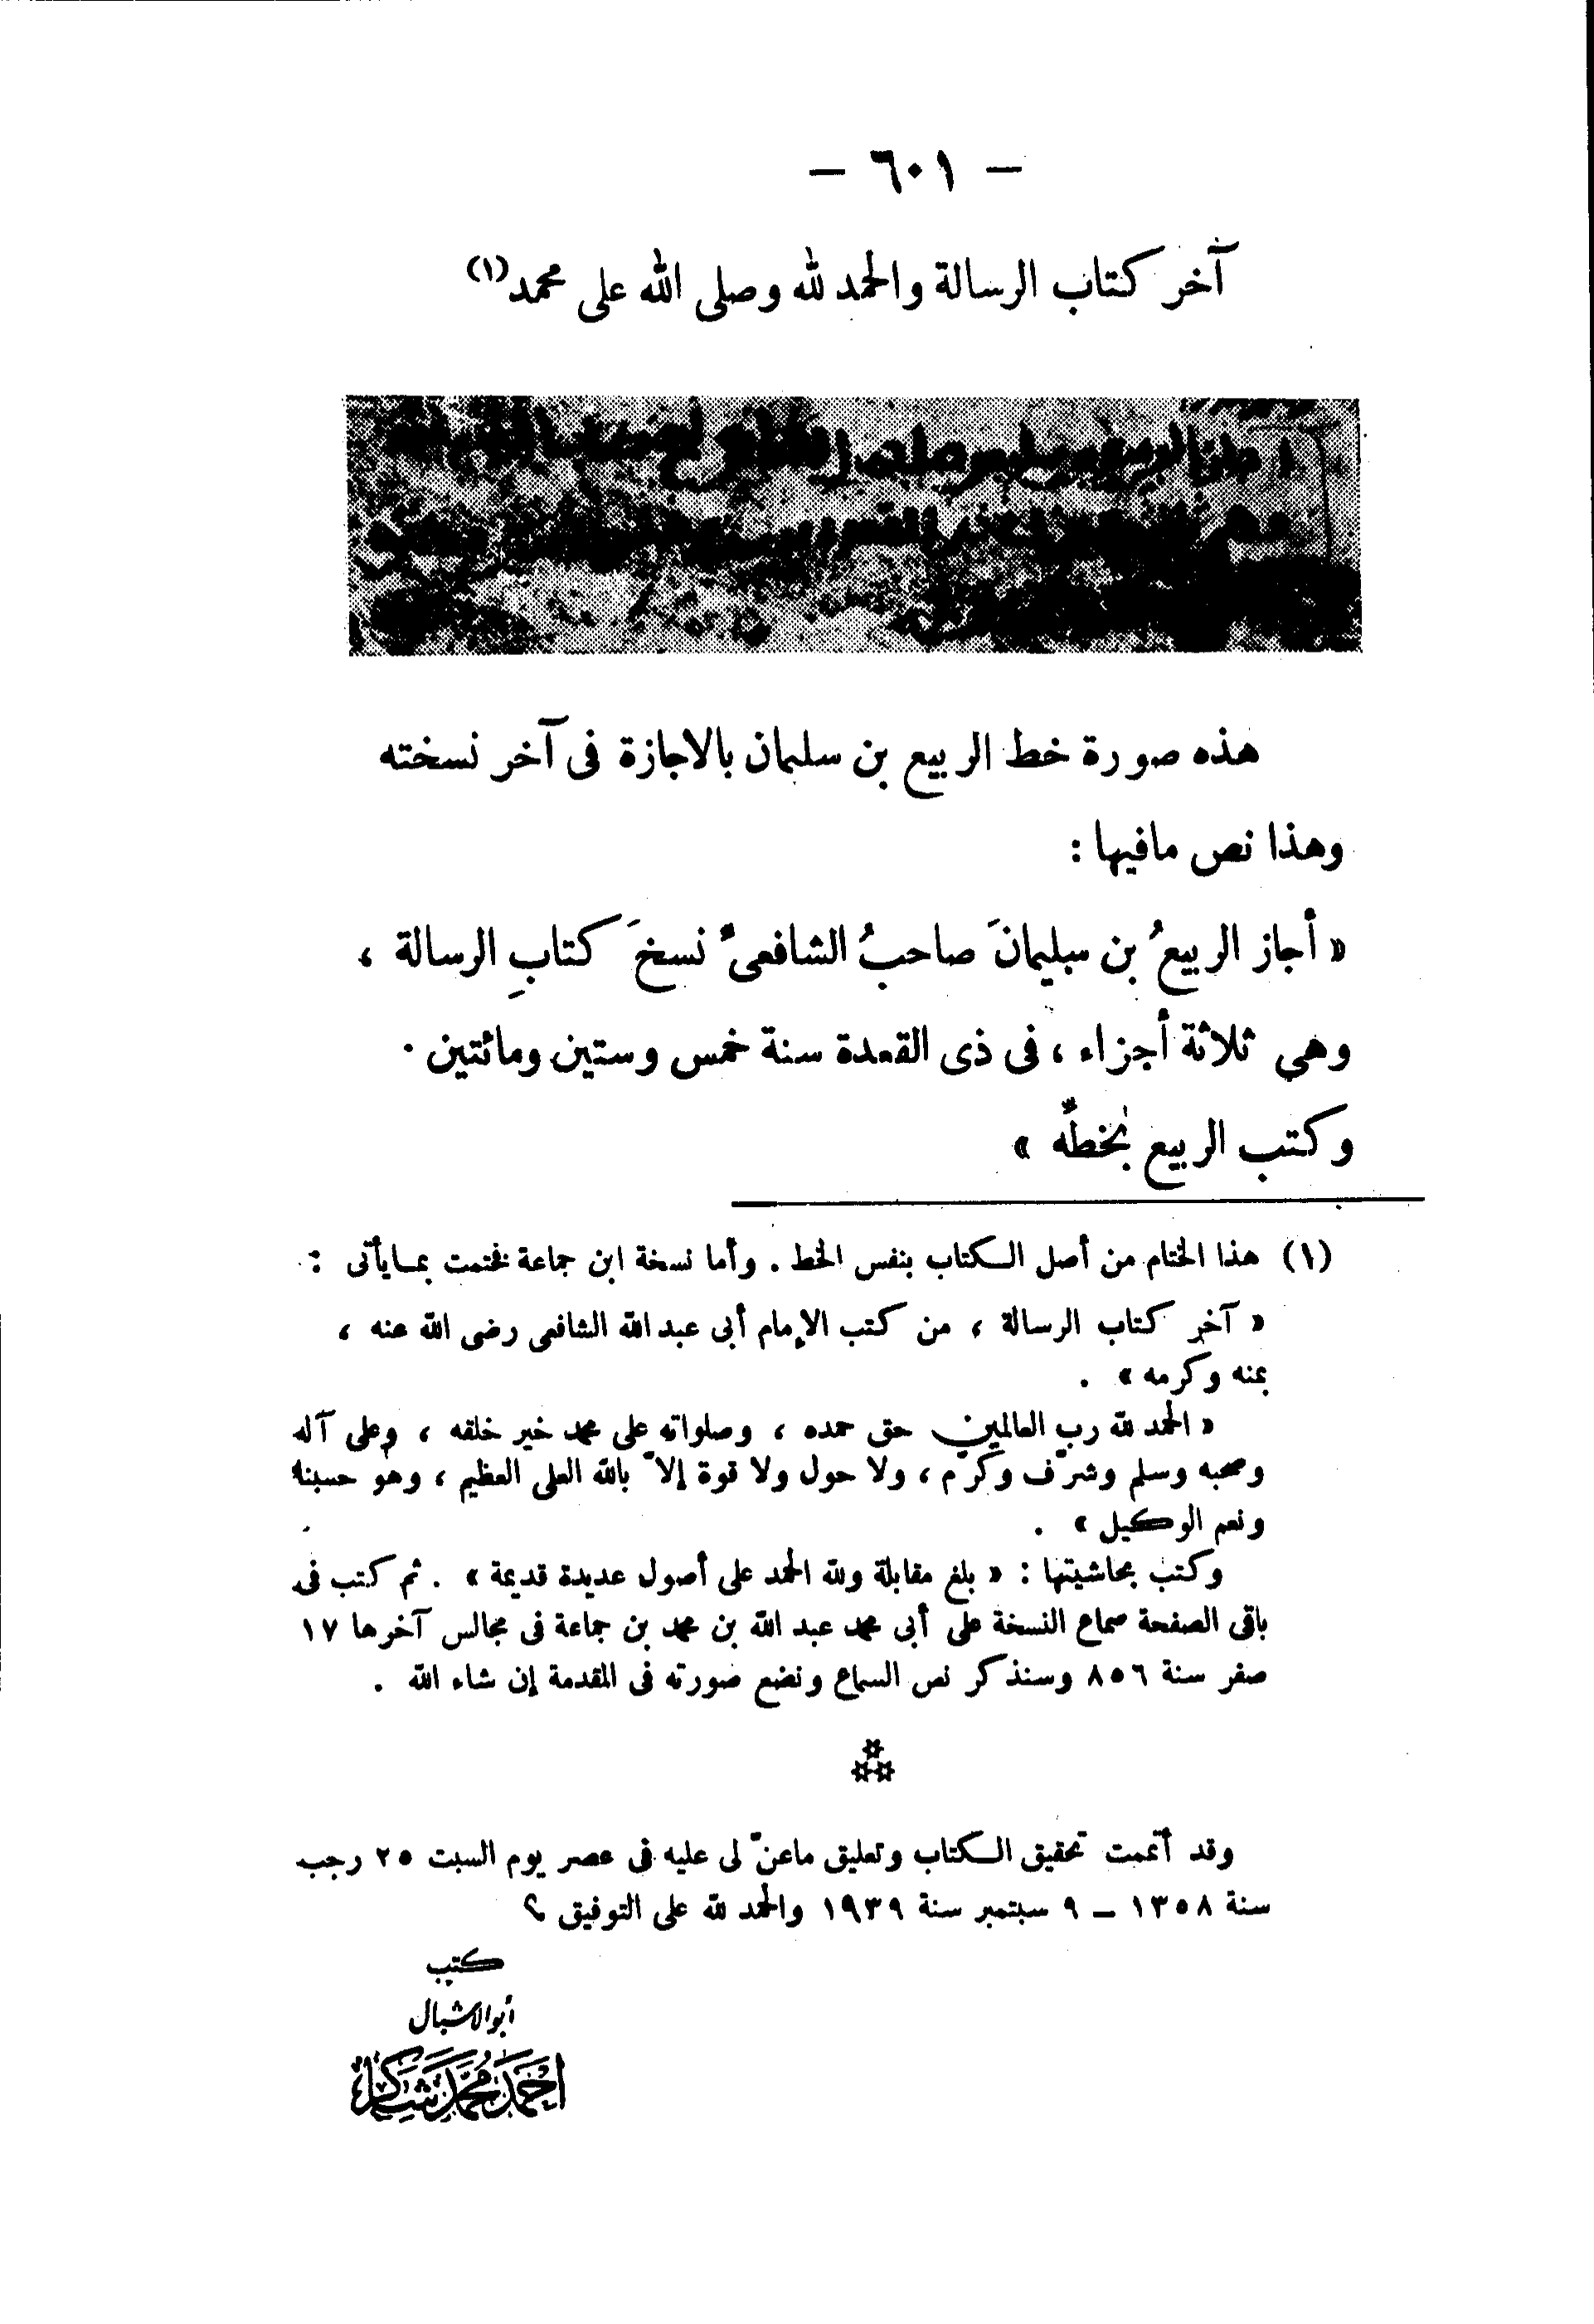 — ٦٠١ —
آخر كتاب الرسالة والحمد لله وصلى الله على محمد(١)
هذه صورة خط الربيع بن سليمان بالاجازة فى آخر نسخته
وهذا نص مافيها :
« أجاز الربيعُ بن سليمانَ صاحبُ الشافعىّ نسخَ كتابِ الرسالة ،
وهي ثلاثة أجزاء ، فى ذى القعدة سنة خمس وستين ومائتين .
وكتب الربيع بخطّه »
(١) هذا الختام من أصل الكتاب بنفس الخط . وأما نسخة ابن جماعة فختمت بمايأتى :
« آخر كتاب الرسالة ، من كتب الإمام أبى عبد الله الشافعى رضى الله عنه ،
بمنه وكرمه » .
« الحمد لله رب العالمين حق حمده ، وصلواته على محمد خير خلقه ، وعلى آله
وصحبه وسلم وشرّف وكرّم ، ولا حول ولا قوة إلاّ بالله العلى العظيم ، وهو حسبنا
ونعم الوكيل » .
وكتب بحاشيتها : « بلغ مقابلة ولله الحمد على أصول عديدة قديمة » . ثم كتب فى
باقى الصفحة سماع النسخة على أبى محمد عبد الله بن محمد بن جماعة فى مجالس آخرها ١٧
صفر سنة ٨٥٦ وسنذكر نص السماع ونضع صورته فى المقدمة إن شاء الله .
وقد أتممت تحقيق الكتاب وتعليق ماعنّ لى عليه فى عصر يوم السبت ٢٥ رجب
سنة ١٣٥٨ — ٩ سبتمبر سنة ١٩٣٩ والحمد لله على التوفيق
كتب
أبو الأشبال
أحمد محمد شاكر